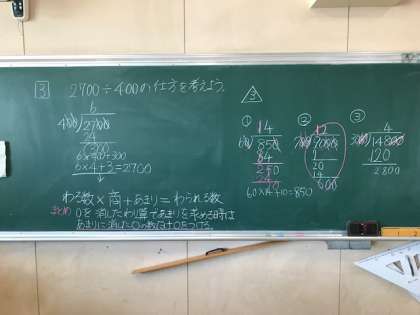 3 2700÷400の仕方を考えよう。
6
400)2700
24
300
6×400+300
6×4+3=2700
わる数×商+あまり=わられる数
まとめ 0を消したわり算であまりを求める時は
あまりに消した0の数だけ0をつける。
3
①
14
60)850
250
60×14+10=850
②
20
14
600
③
4
14800
120
2800